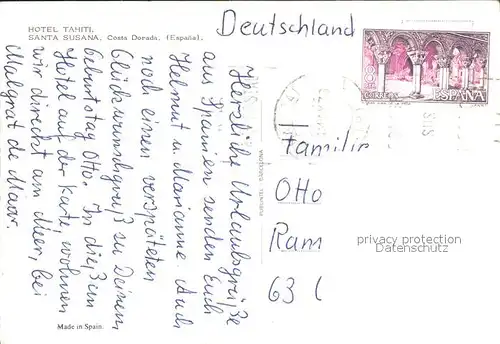 HOTEL TAHITI.
SANTA SUSANA. Costa Dorada. (España).
Deutschland
CORREOS ESPAÑA
Herzliche Urlaubsgrüße
aus Spanien senden Euch
Helmut u Marianne. Auch
noch einen verspäteten
Glückwunschgruß zu Deinem
Geburtstag Otto. In dießem
Hotel auf der Karte, wohnen
wir direckt am Meer, bei
Malgrat de Maar.
Familie
OTTO
Ram
63
privacy protection
Datenschutz
Made in Spain.